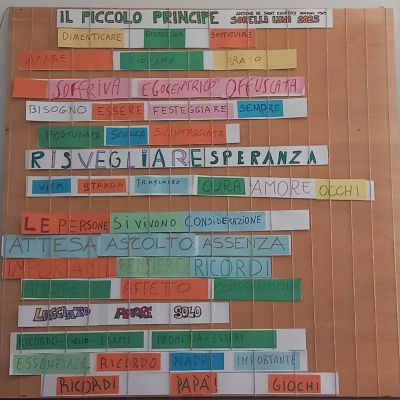 IL PICCOLO PRINCIPE ANTOINE DE SAINT EXUPERY SORELLA LUNA 2025
DIMENTICARE RISPECCHIA SOSTITUIRE
AMARE GIOVANE GRATO
SOFFRIVA EGOCENTRICO OFFUSCATA
BISOGNO ESSERE FESTEGGIARE SEMPRE
FORTUNATA SCUOLA SVANTAGGIATA
RISVEGLIARE SPERANZA
VITA STRADA CURA AMORE OCCHI
LE PERSONE SI VIVONO CONSIDERAZIONE
ATTESA ASCOLTO ASSENZA
IMPORTANTI PENSIERO RICORDI
AMORE AFFETTO COMPRENSIONE
LASCIATO AMORE SOLO
RICORDO-FIGLIO-ESAME PROMESSA-ESSERE
ESSENZIALE RICORDO MADRE IMPORTANTE
RICORDI PAPA'! GIOCHI